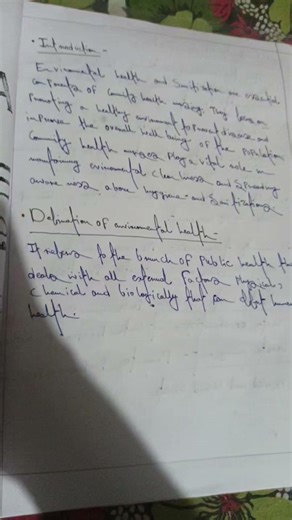 • Introduction -
Enviromental health and Sanitation are essential
components of Community health nursing. They focus on
Promoting a healthy enviroment to Prevent disease and
improve the overall well being of the Population
Community health nurses Play a vital role in
maintaining enviromental cleanliness and Spreading
awareness about hygiene and Sanitation.
• Defination of enviromental health -
It refers to the branch of Public health that
deals with all external factors Physical,
Chemical and biologically that can affect human
health.